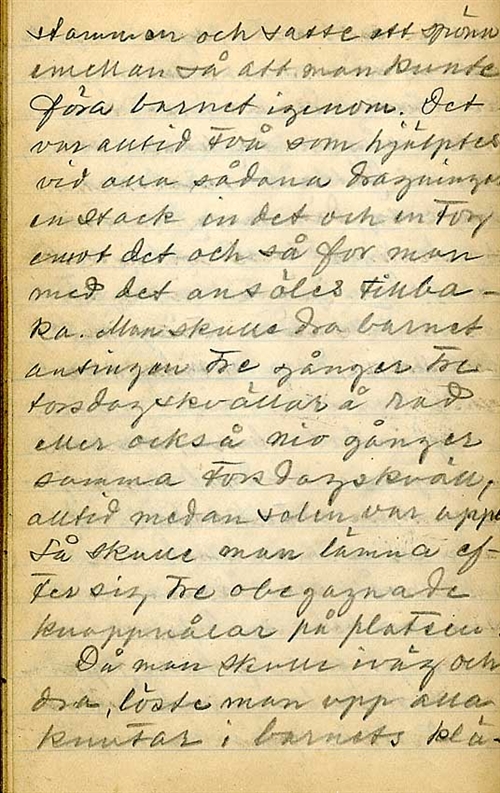 stammen och satte ett spänn
emellan så att man kunte
föra barnet igenom. Det
var alltid två som hjälptes
vid alla sådana dragningar
en stack in det och en tog
emot det och så for man
med det ansöles tillba-
ka. Man skulle dra barnet
antingen tre gånger tre
torsdagskvällar å rad
eller också nio gånger
samma torsdagskväll,
alltid medan solen var uppe
Så skulle man lämna ef-
ter sig tre obegagnade
knappnålar på platsen
Då man skulle iväg och
dra, löste man upp alla
knutar i barnets klä-